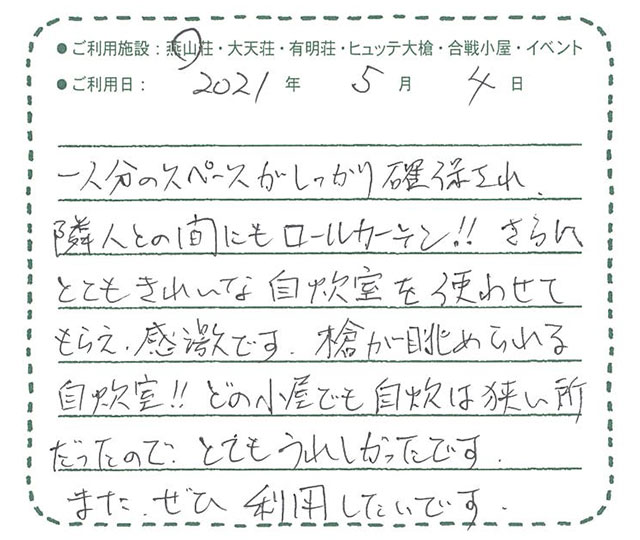 ●ご利用施設：燕山荘・大天荘・有明荘・ヒュッテ大槍・合戦小屋・イベント
●ご利用日： 2021 年 5 月 4 日
一人分のスペースがしっかり確保され、
隣人との間にもロールカーテン!! さらに
とてもきれいな自炊室を使わせて
もらえ、感激です。槍が眺められる
自炊室!! どの小屋でも自炊は狭い所
だったので、とてもうれしかったです。
また、ぜひ利用したいです。